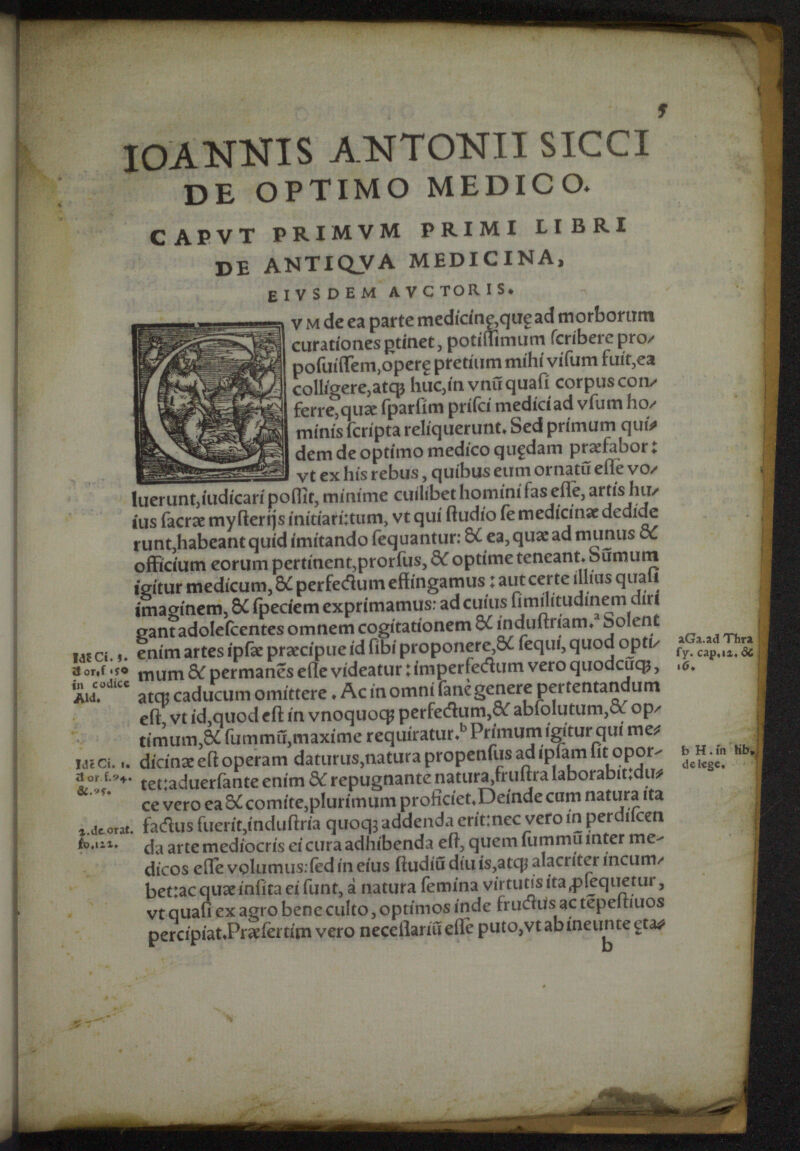 5
IOANNIS ANTONII SICCI
DE OPTIMO MEDICO.
CAPVT PRIMVM PRIMI LIBRI
DE ANTIQVA MEDICINA,
EIVSDEM AVCTORIS.
CVM de ea parte medicinę,quę ad morborum
curationes ꝑtinet, potiſſimum ſcribere pro⸗
poſuiſſem,operę pretium mihi viſum fuit,ea
colligere,atqꝫ huc,in vnū quaſi corpus con⸗
ferre,quæ ſparſim priſci medici ad vſum ho⸗
minis ſcripta reliquerunt. Sed primum qui⸗
dem de optimo medico quędam præfabor:
vt ex his rebus, quibus eum ornatū eſſe vo⸗
luerunt,iudicari poſſit, minime cuilibet homini fas eſſe, artis hu⸗
ius ſacræ myſterijs initiari:tum, vt qui ſtudio ſe medicinæ dedide
runt,habeant quid imitando ſequantur: & ea, quæ ad munus &
officium eorum pertinent,prorſus, & optime teneant. Sūmum
igitur medicum, & perfectum effingamus : aut certe illius quaſi
imaginem, & ſpeciem exprimamus: ad cuius ſimilitudinem diri
gant adoleſcentes omnem cogitationem & induſtriam.ᵃ Solent
enim artes ipſæ præcipue id ſibi proponere,& ſequi, quod opti⸗
mum & permanēs eſſe videatur : imperfectum vero quodcūqꝫ,
atqꝫ caducum omittere . Ac in omni ſane genere pertentandum
eſt, vt id,quod eſt in vnoquoqꝫ perfectum,& abſolutum,& op⸗
timum,& ſummū,maxime requiratur.ᵇ Primum igitur qui me⸗
dicinæ eſt operam daturus,natura propenſus ad ipſam ſit opor⸗
tet:aduerſante enim & repugnante natura,fruſtra laborabit:du⸗
ce vero ea & comite,plurimum proficiet.Deinde cum natura ita
factus fuerit,induſtria quoqꝫ addenda erit:nec vero in perdiſcen
da arte mediocris ei cura adhibenda eſt, quem ſummū inter me⸗
dicos eſſe volumus:ſed in eius ſtudiū diu is,atqꝫ alacriter incum⸗
bet:ac quæ inſita ei ſunt, à natura ſemina virtutis ita ꝓſequetur,
vt quaſi ex agro bene culto, optimos inde fructus ac tēpeſtiuos
percipiat.Præſertim vero neceſſariū eſſe puto,vt ab ineunte ęta⸗
b
Idē Ci. 3.
d or.f 150
in codice
Ald.
Idē Ci. 1.
d or f.94.
&.95.
2.de orat.
fo.122.
aGa.ad Thra
ſy. cap.12. &
16.
b H.in lib.
de lege.